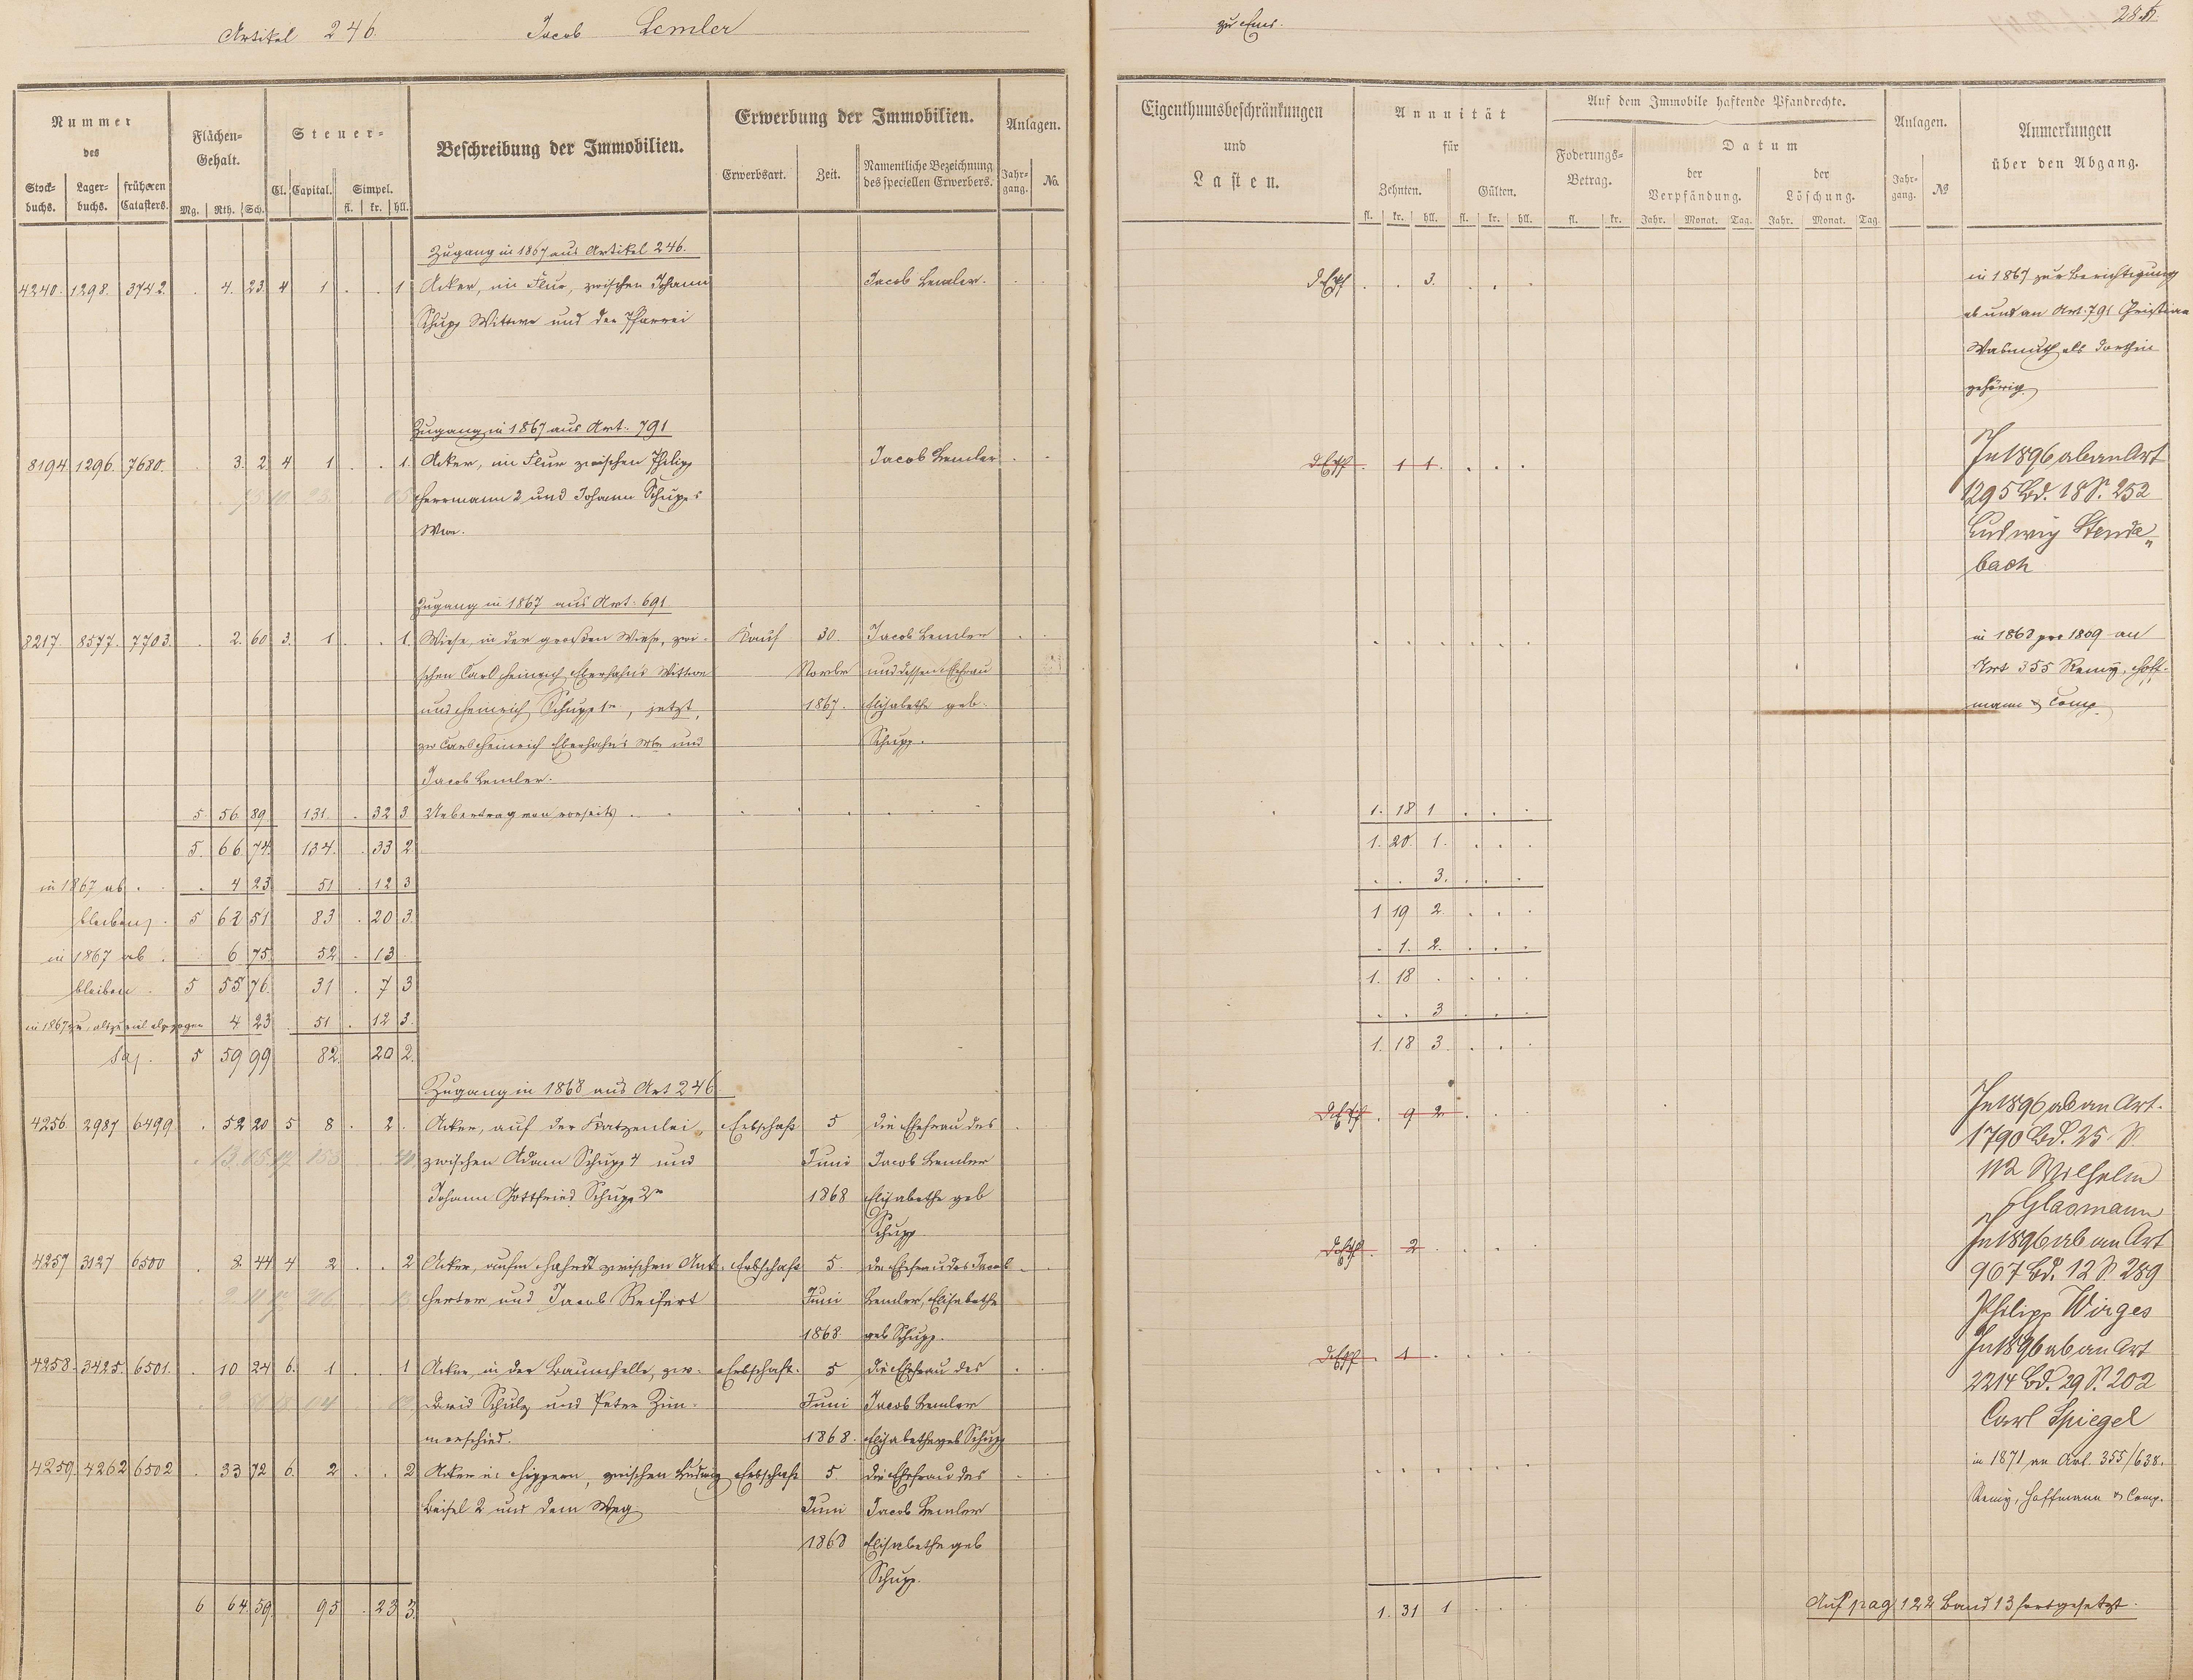 Artikel 246. Jacob Lemler
zu Ems.
Nummer des
Stockbuchs. Lagerbuchs. früheren Catasters.
Flächen-Gehalt.
Mg. Rth. Sch.
Steuer-
Cl. Capital. Simpel.
fl. kr. hll.
Beschreibung der Immobilien.
Erwerbung der Immobilien.
Erwerbsart. Zeit. Namentliche Bezeichnung des speciellen Erwerbers.
Anlagen.
Jahrgang. No.
Eigenthumsbeschränkungen
und
Lasten.
Annuität
für
Zehnten. Gülten.
fl. kr. hll. fl. kr. hll.
Auf dem Immobile haftende Pfandrechte.
Foderungs-Betrag.
fl. kr.
Datum
der Verpfändung. der Löschung.
Jahr. Monat. Tag. Jahr. Monat. Tag.
Anlagen.
Jahrgang. No
Anmerkungen
über den Abgang.
Zugang in 1867 aus Artikel 246.
4240. 1298. 3742. . 4. 23. 4 1 . . 1 Acker, im Flur, zwischen Johann Jacob Lemler. . . 3. . . . in 1867 zur Berichtigung
Schupp Wittwe und der Pfarrei ab und an Art. 791 Christian
Wasmuth als dorthin
gehörig
Zugang in 1867 aus Art. 791
8194. 1296. 7680. . 3. 2. 4 1 . . 1. Acker, im Flur zwischen Philipp Jacob Lemler . 1 1. . . . In 1896 ab an Art
Herrmann 2 und Johann Schupp's 1295 Bd. 18 S. 252
Wwe. Ludwig Stende„
bach
Zugang in 1867 aus Art. 691
8217. 8577. 7703. . 2. 60 3. 1 . . 1. Wiese, in der großen Wiese, zwi- Kauf 30. Jacob Lemler in 1868 pro 1869 an
schen Carl Heinrich Eberhahn's Wittwe Novbr und dessen Ehefrau Art 355 Remy, Hoff-
und Heinrich Schupp 1r, jetzt, 1867. Elisabethe geb. mann & Comp.
zw Carl Heinrich Eberhahn's Wb. und Schupp.
Jacob Lemler.
5 56 89 131. . 32 3. Uebertrag von vorseits 1. 18 1
5. 66 74. 134. . 33 2. 1. 20 1.
in 1867 ab . . . 4 23 51 . 12 3 . . 3.
bleiben . 5 62 51 83 . 20 3. 1 19 2
in 1867 ab . . 6 75. 52 . 13 . 1. 2.
bleiben . 5 55 76. 31 . 7 3 1. 18 .
in 1867 zu, alszuviel abgezogen 4 23 51 . 12 3. . . 3
Sa. 5 59 99 82. 20 2. 1. 18 3.
Zugang in 1868 aus Art 246
4256 2987 6499 . 52 20 5 8 . 2 . Acker, auf der Katzenlei Erbschaft 5 die Ehefrau des . 9 2 . . . In 1896 ab an Art.
zwischen Adam Schupp 4 und Juni Jacob Lemler 1790 Bd. 25 S.
Johann Gottfried Schupp 2r 1868 Elisabethe geb 112 Wilhelm
Schupp Glasmann
4257 3127 6500 . 8. 44 4 2 . . 2 Acker, aufm Hahnst zwischen Ant. Erbschaft 5. die Ehefrau des Jacob . 2 . In 1896 ab an Art
Herter und Jacob Reifert Juni Lemler, Elisabethe 967 Bd. 12 S. 289
1868. geb Schupp. Philipp Wirges
4258. 3425. 6501. . 10 24 6. 1 . . 1 Acker, in der Baumhelle, zw. Erbschaft. 5 die Ehefrau des . 1 . In 1896 ab an Art
David Schulz und Peter Zim- Juni Jacob Lemler 2214 Bd. 29 S. 202
merschied. 1868. Elisabethe geb Schupp Carl Spiegel
4259. 4262 6502 . 33 72 6. 2 . . 2 Acker in Hippern, zwischen Ludwig Erbschaft 5. die Ehefrau des in 1871 an Art. 355/638.
Beisel 2 und dem Weg. Juni Jacob Lemler Remy, Hoffmann & Comp.
1868 Elisabethe geb
Schupp.
6 64. 59. 95 . 23 3. 1. 31 1
Auf pag 122 Band 13 fortgesetzt.